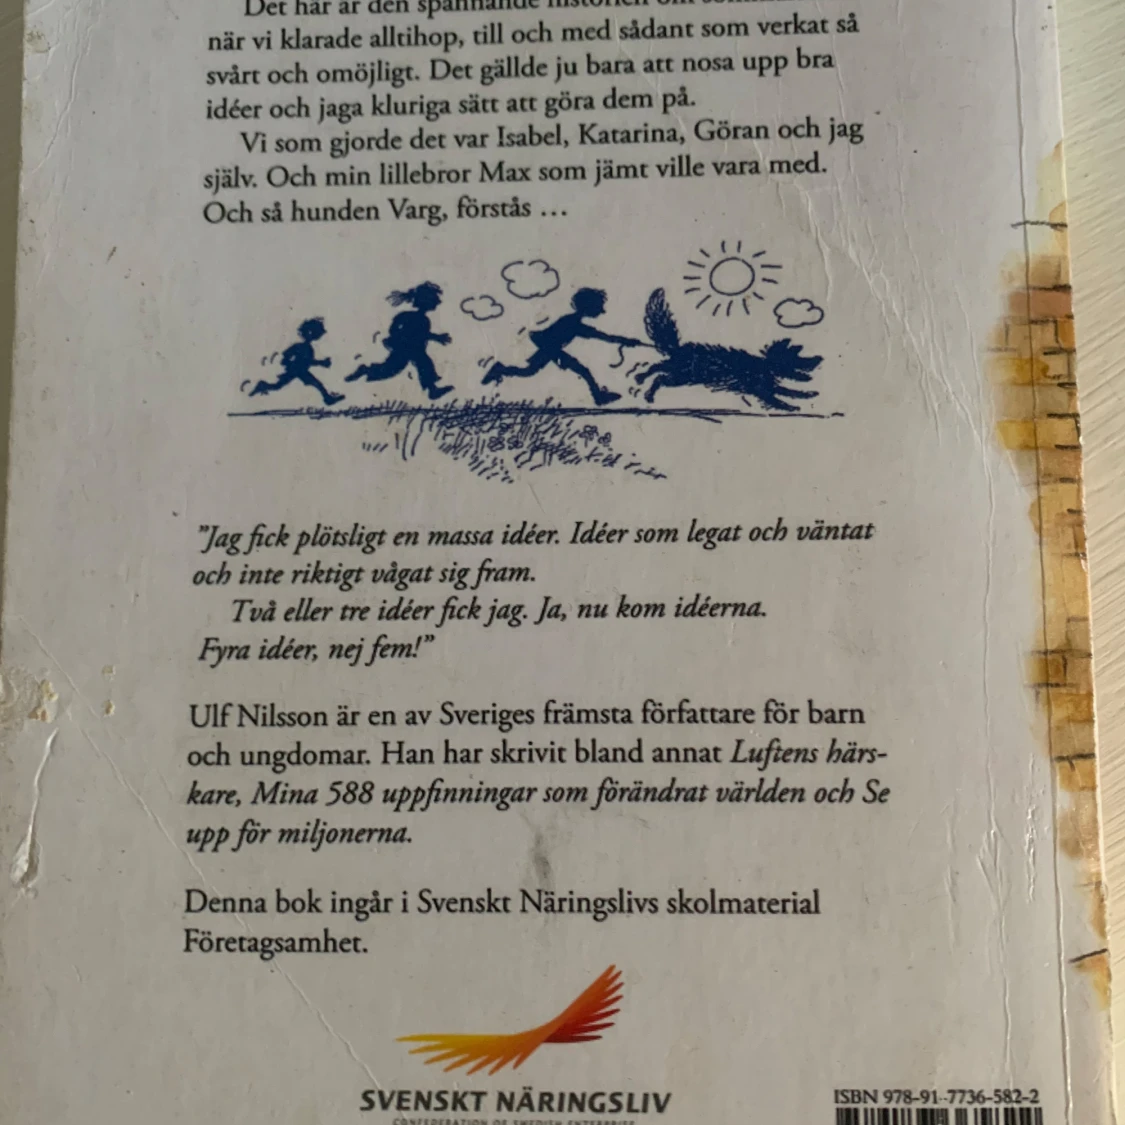 Det här är den spännande historien om
när vi klarade alltihop, till och med sådant som verkat så
svårt och omöjligt. Det gällde ju bara att nosa upp bra
idéer och jaga kluriga sätt att göra dem på.
Vi som gjorde det var Isabel, Katarina, Göran och jag
själv. Och min lillebror Max som jämt ville vara med.
Och så hunden Varg, förstås ...
"Jag fick plötsligt en massa idéer. Idéer som legat och väntat
och inte riktigt vågat sig fram.
Två eller tre idéer fick jag. Ja, nu kom idéerna.
Fyra idéer, nej fem!"
Ulf Nilsson är en av Sveriges främsta författare för barn
och ungdomar. Han har skrivit bland annat Luftens härs-
kare, Mina 588 uppfinningar som förändrat världen och Se
upp för miljonerna.
Denna bok ingår i Svenskt Näringslivs skolmaterial
Företagsamhet.
SVENSKT NÄRINGSLIV
CONFEDERATION OF SWEDISH ENTERPRISE
ISBN 978-91-7736-582-2